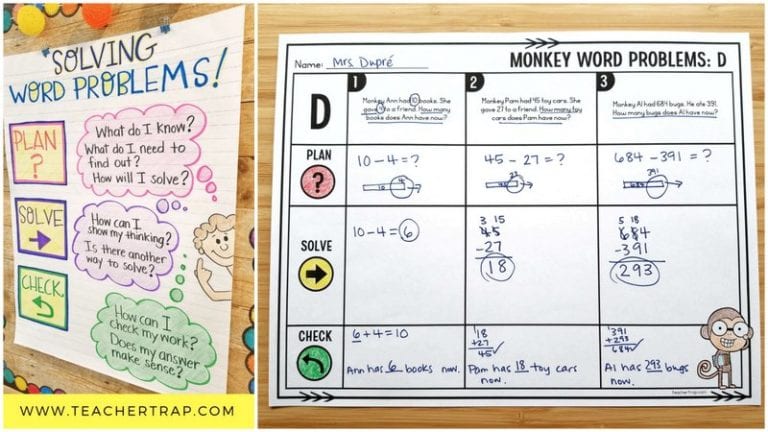 SOLVING
WORD PROBLEMS!
PLAN
?
What do I know?
What do I need to
find out?
How will I solve?
SOLVE
How can I
show my thinking?
Is there another
way to solve?
CHECK
How can I
check my work?
Does my answer
make sense?
WWW.TEACHERTRAP.COM
Name: Mrs. Dupré
MONKEY WORD PROBLEMS: D
D
1
Monkey Ann had 10 books. She
gave 4 to a friend. How many
books does Ann have now?
2
Monkey Pam had 45 toy cars. She
gave 27 to a friend. How many toy
cars does Pam have now?
3
Monkey Al had 684 bugs. He ate 391.
How many bugs does Al have now?
PLAN
?
10 - 4 = ?
45 - 27 = ?
27
684 - 391 = ?
391
SOLVE
10 - 4 = 6
3 15
45
-27
18
5 18
684
-391
293
CHECK
6 + 4 = 10
Ann has 6 books now.
1
18
+27
45
Pam has 18 toy cars
now.
1
391
+293
684
Al has 293 bugs
now.
teachertrap.com